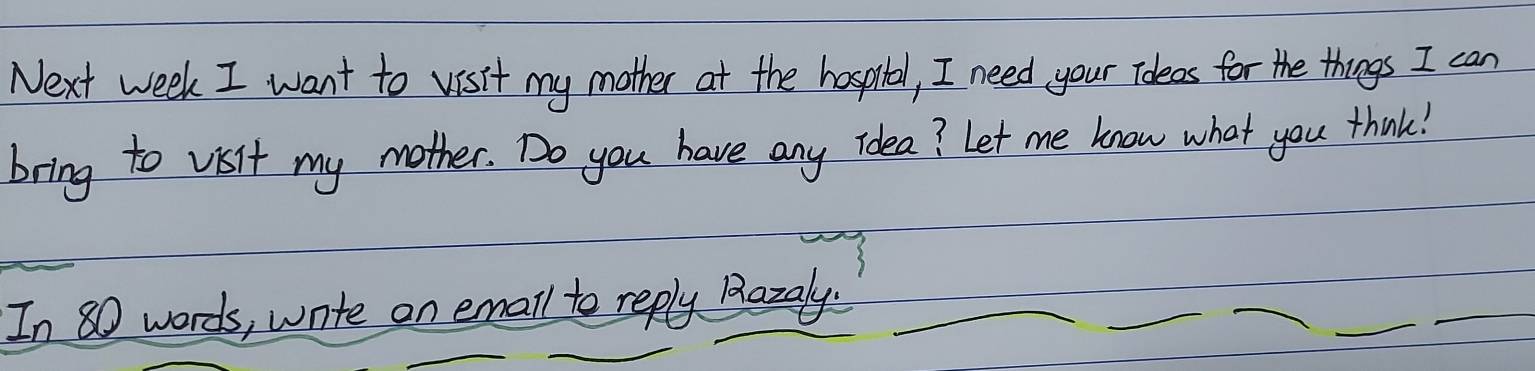 Next week I want to visit my mother at the hospital, I need your ideas for the things I can
bring to visit my mother. Do you have any idea? Let me know what you think!
In 80 words, write an email to reply Razaly.